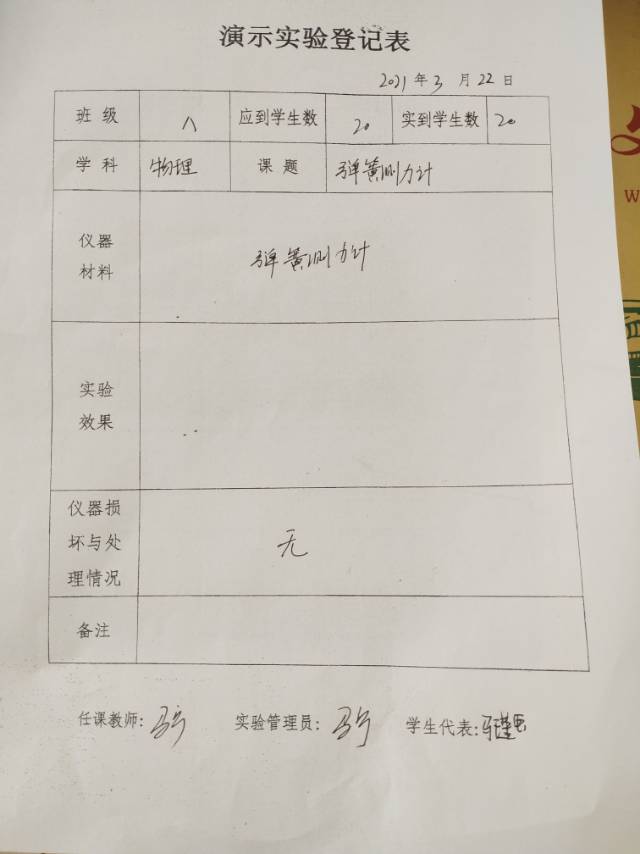 演示实验登记表
2021年3月22日
班级 八 应到学生数 20 实到学生数 20
学科 物理 课题 弹簧测力计
仪器
材料
弹簧测力计
实验
效果
仪器损
坏与处
理情况
无
备注
任课教师: 实验管理员: 学生代表:
W